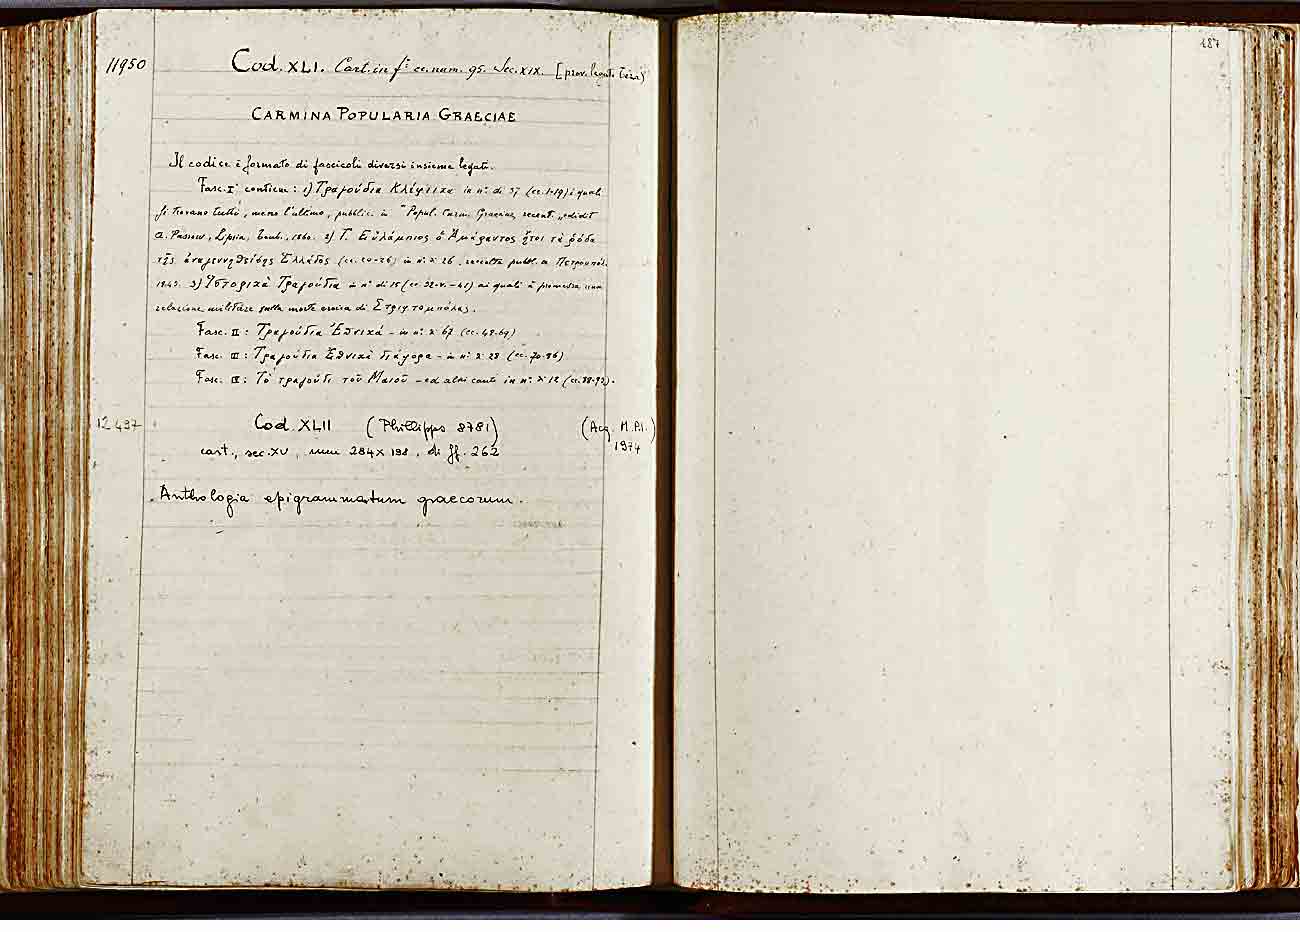 187
11950 Cod. XLI. Cart. in fº cc. num. 95. Sec. XIX. [prov. legato Teza]
CARMINA POPULARIA GRAECIAE
Il codice è formato di fascicoli diversi insieme legati.
Fasc. I contiene: 1) Τραγούδια Κλέφτικα in nº. di 37 (cc. 1-19) i quali
si trovano tutti, meno l'ultimo, pubblic. in "Popul. Carm. Graeciae recent. edidit
A. Passow, Lipsia, Teub., 1860. 2) Γ. Εὐλάμπιος ὁ Ἀμάραντος ἤτοι τὰ ῥόδα
τῆς ἀναγεννηθείσης Ἑλλάδος (cc. 20-26) in nº. di 26. raccolta pubbl. a Πετρουπόλ.
1843. 3) Ἱστορικὰ Τραγούδια in nº di 15 (cc. 32-v. - 41) ai quali è premessa una
relazione militare sulla morte eroica di
Fasc. II: Τραγούδια Ἐθνικά - in nº. di 67 (cc. 48-69)
Fasc. III: Τραγούδια Ἐθνικὰ διάφορα - in nº. di 28 (cc. 70-86)
Fasc. IV: Τὸ τραγούδι τοῦ Μαιοῦ - ed altri canti in nº. di 12 (cc. 88-92).
12437 Cod. XLII (Phillipps 8781) (Acq. M.P.I.)
1974
cart., sec. XV, mm 284 x 198, di ff. 262
Anthologia epigrammatum graecorum.